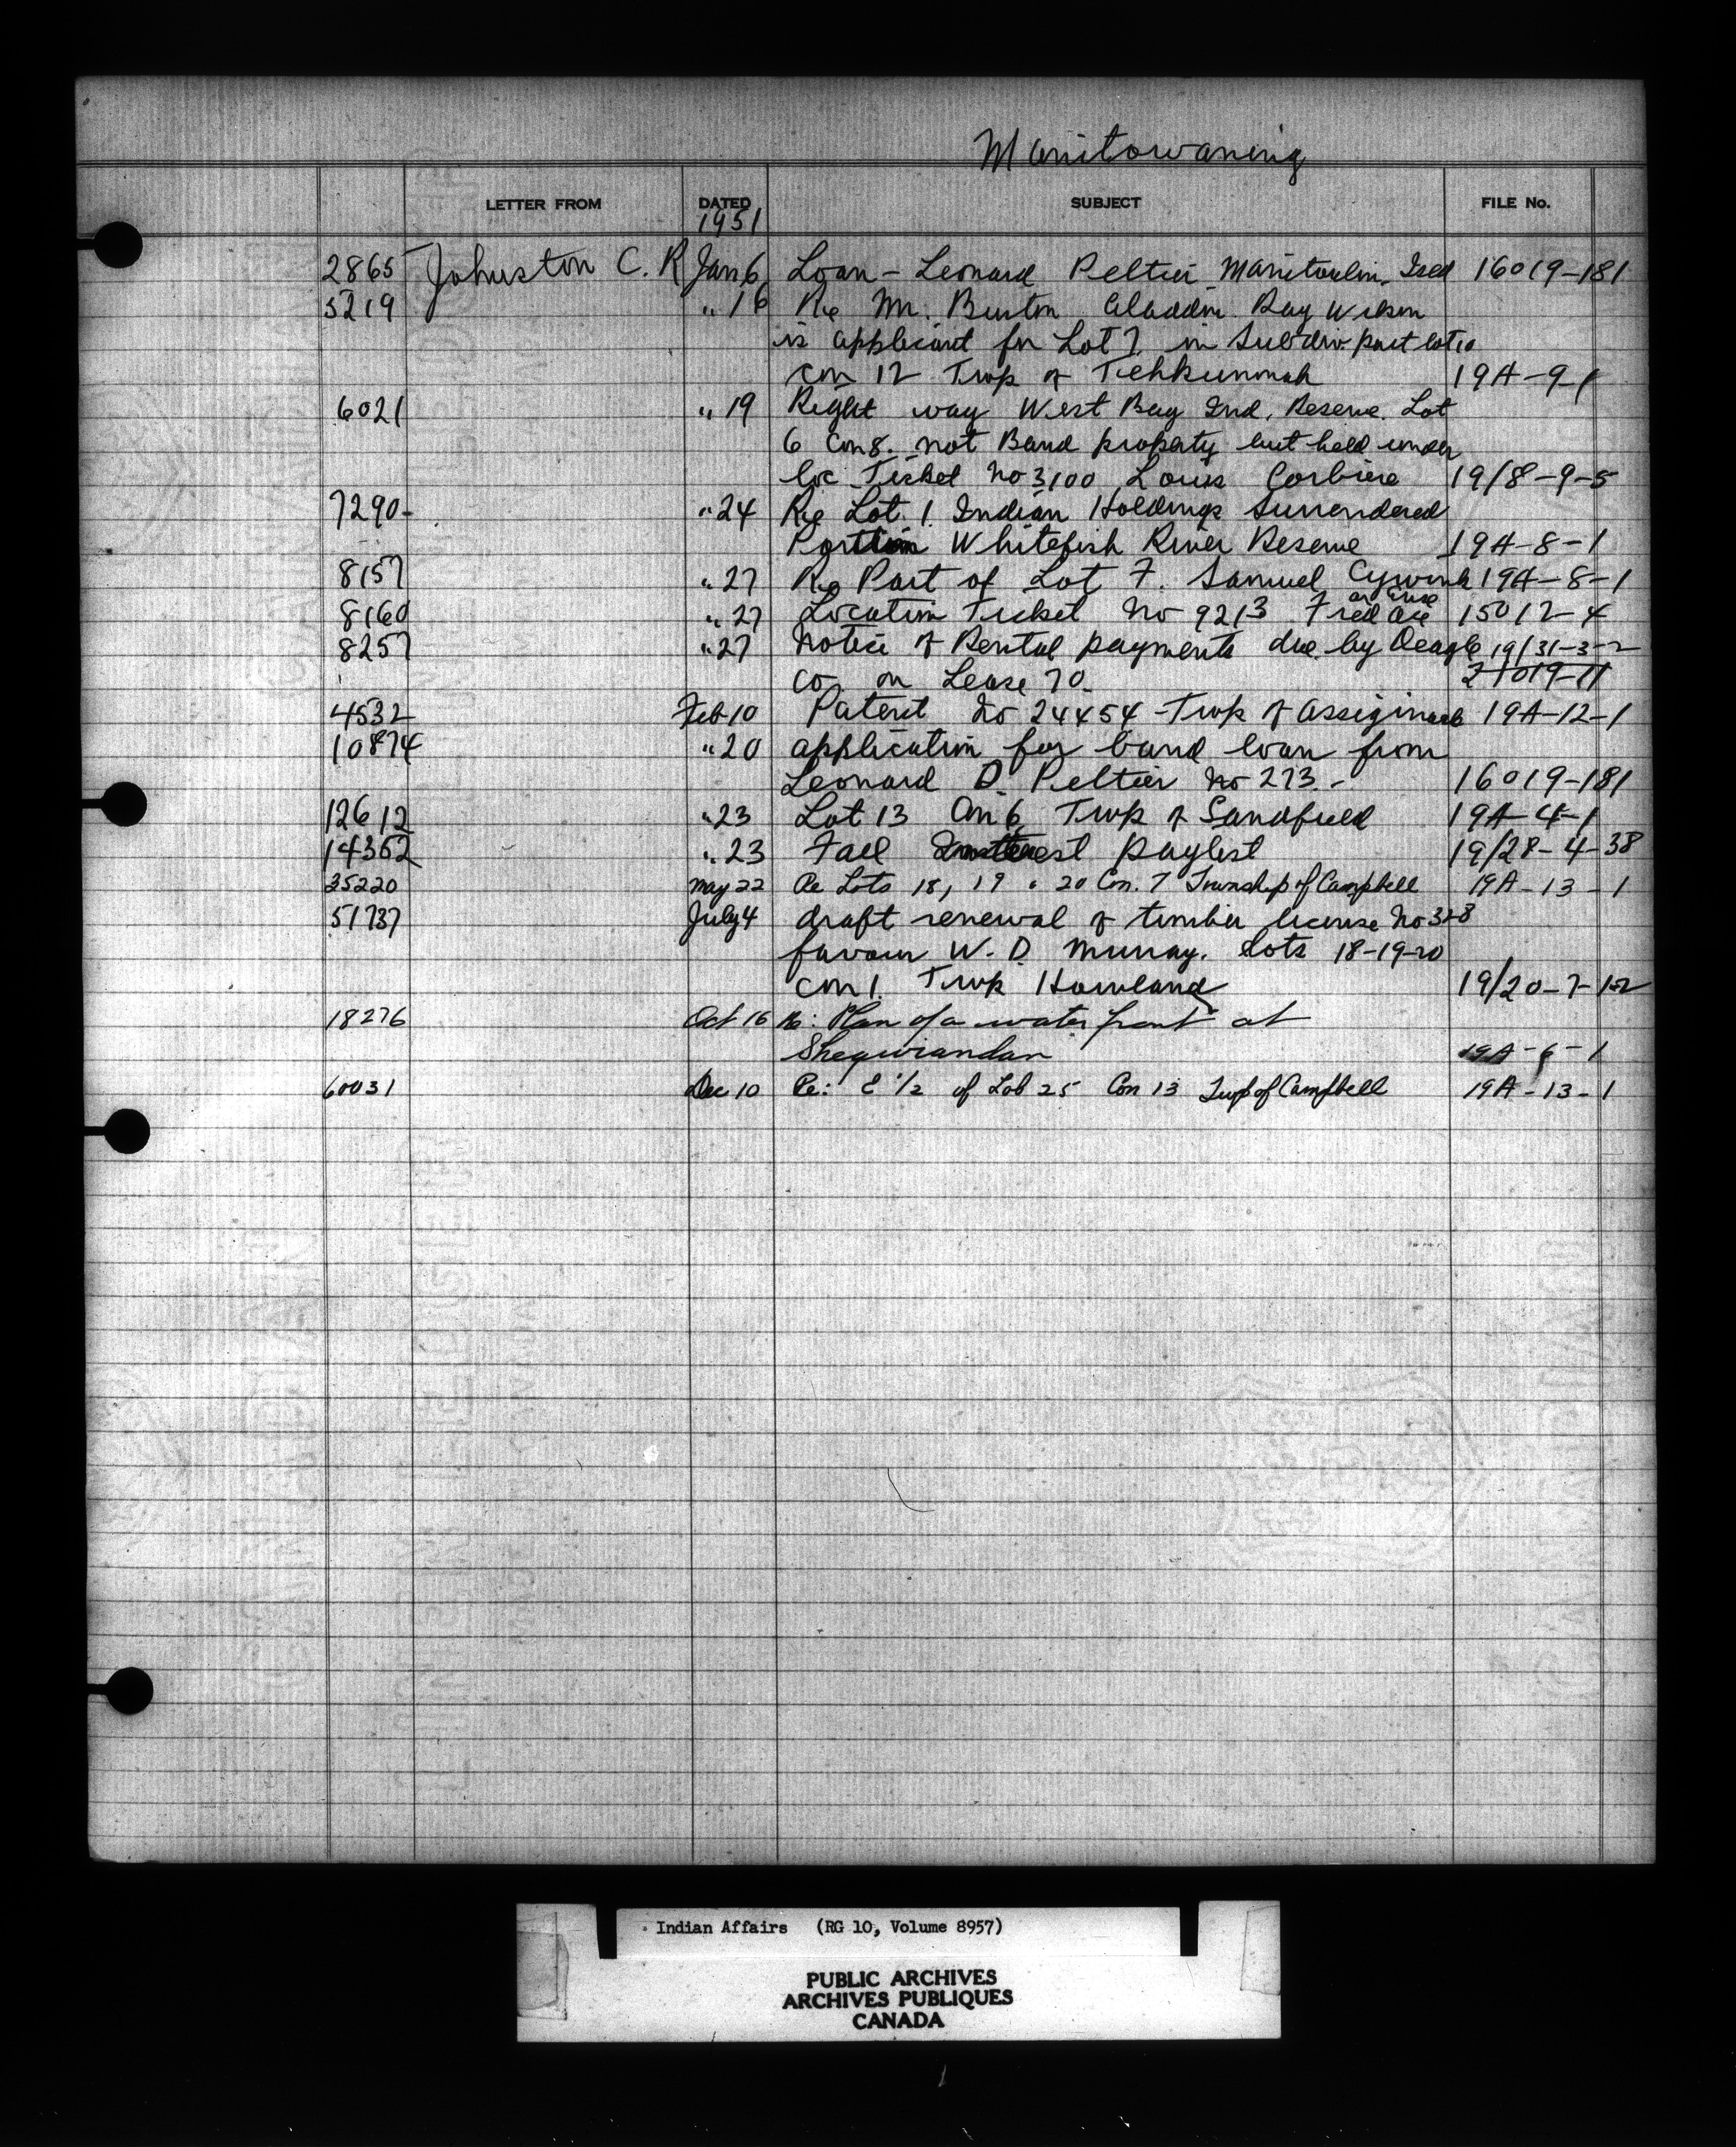 Manitowaning
LETTER FROM DATED SUBJECT FILE No.
1951
2865 Johnston C. R Jan 6 Loan - Leonard Peltier Manitoulin Isld 16019-181
5219 " 16 Re Mr. Burton Aladdin Ray Wilson
is applicant for Lot 7 in Subdiv part lot 10
con 12 Twp of Tehkummah 19A-9-1
6021 " 19 Right way West Bay Ind. Reserve. Lot
6 Con 8. not Band property but held under
loc Ticket no 3100 Louis Corbiere 19/8-9-5
7290- " 24 Re Lot 1 Indian Holdings Surrendered
Portion Whitefish River Reserve 19A-8-1
8157 " 27 Re Part of Lot 7. Samuel 19A-8-1
8160 " 27 Location Ticket No 9213 Fred 15012-4
8257 " 27 Notice of Rental payments due by 19/31-3-2
co. on Lease 70. 21019-11
4532 Feb 10 Patent No 24454 - Twp of Assiginack 19A-12-1
10874 " 20 application for band loan from
Leonard D. Peltier No 273.- 16019-181
12612 " 23 Lot 13 Con 6 Twp of Sandfield 19A-4-1
14362 " 23 Fall Interest paylist 19/28-4-38
35220 May 22 Re Lots 18, 19 & 20 Con. 7 Township of Campbell 19A-13-1
51737 July 4 draft renewal of timber license No 328
favour W. D. Murray. Lots 18-19-20
con 1. Twp Howland 19/20-7-12
18276 Oct 16 Re: Plan of a water front at
Sheguiandan 19A-6-1
60031 Dec 10 Re: E 1/2 of Lot 25 Con 13 Twp of Campbell 19A-13-1
Indian Affairs (RG 10, Volume 8957)
PUBLIC ARCHIVES
ARCHIVES PUBLIQUES
CANADA